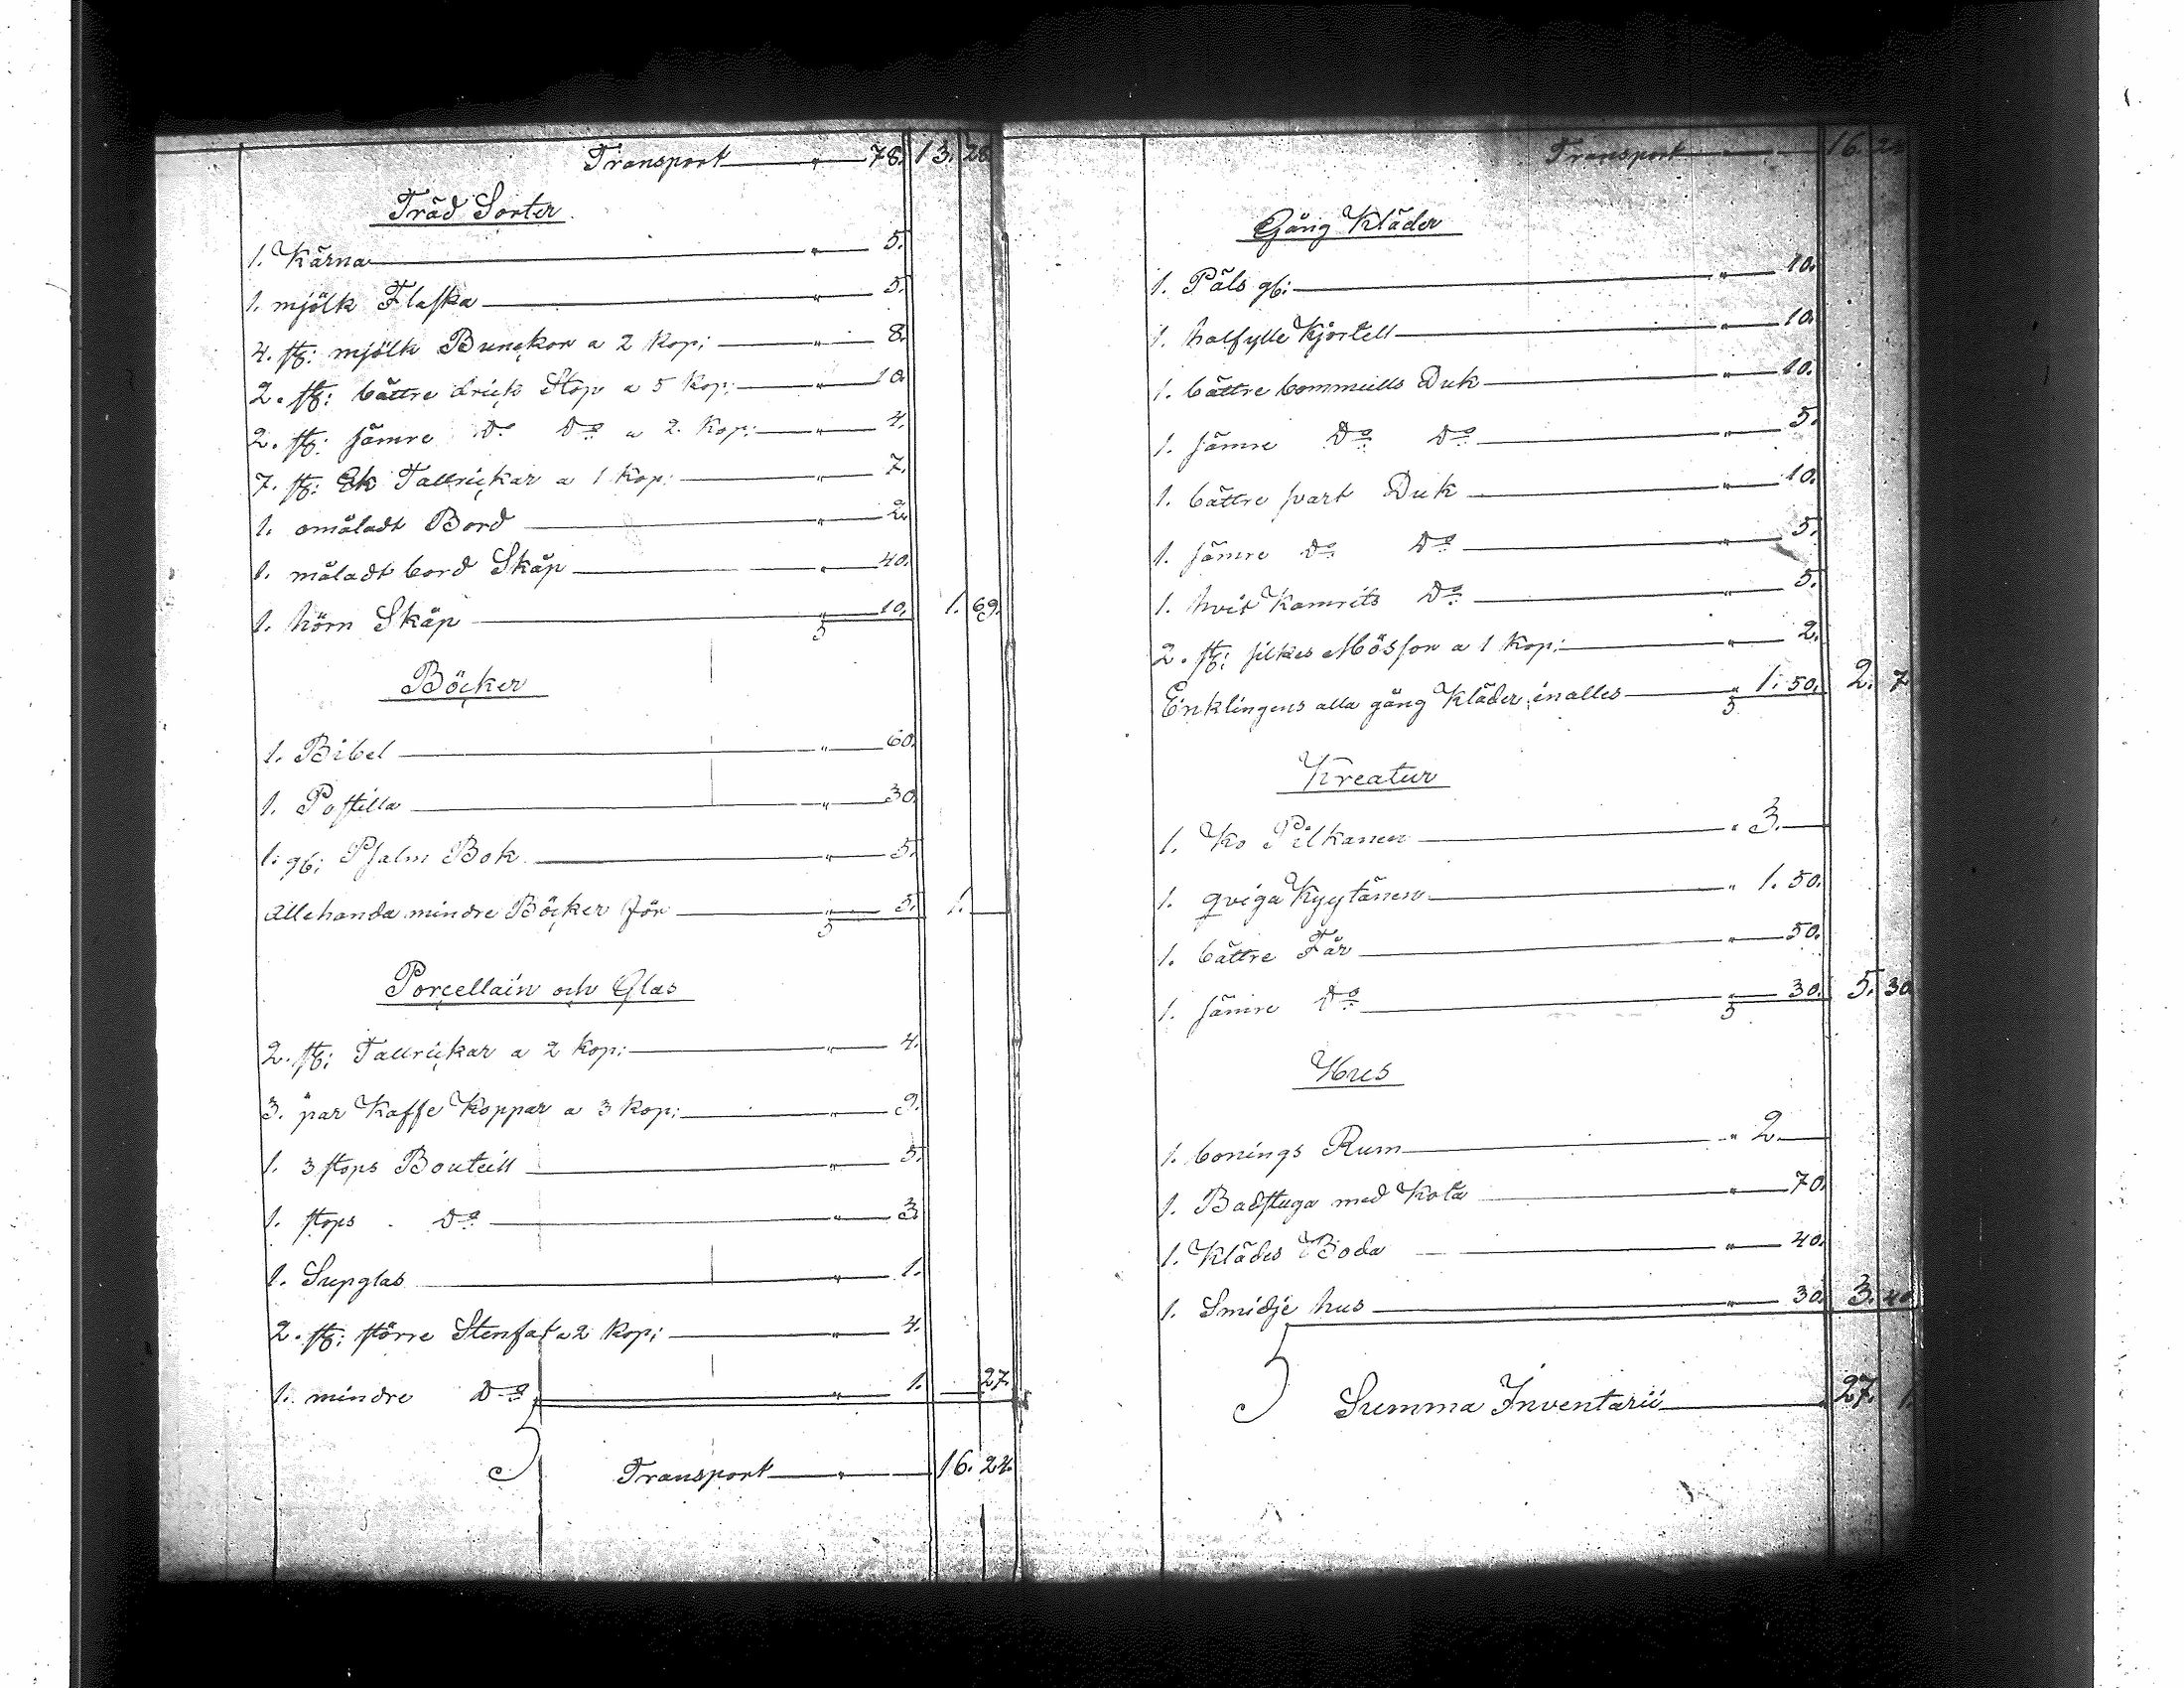 Transport — " — 78. 13. 28
Träd Sorter
1. Kärna — " — 5.
1. mjölk Flaska — " — 5.
4. st: mjölk Bunckor a 2 Kop: — " — 8.
2. st: bättre drick Stop a 5 Kop: — " — 10.
2. st: sämre Do Do a 2 Kop: — " — 4.
7. st: Ek Tallrickar a 1 Kop: — " — 7.
1. omåladt Bord — " — 2.
1. måladt bord Skåp — " — 40.
1. hörn Skåp — " — 10. 1. 69.
Böcker
1. Bibel — " — 60.
1. Postilla — " — 30.
1. gb: Psalm Bok — " — 5.
Allehanda mindre Böcker för — " — 5. 1. —
Porcellain och Glas
2. st: Tallrickar a 2 Kop: — " — 4.
3. par Kaffe Koppar a 3 Kop: — " — 9.
1. 3 stops Bouteill — " — 5.
1. stops Do — " — 3.
1. Supglas — " — 1.
2. st: större Stenfat a 2 Kop: — " — 4.
1. mindre Do — " — 1. — 27.
Transport — " — 16. 24.
Transport — " — 16. 24
Gång Kläder
1. Päls gb: — " — 10.
1. halfylle Kjortell — " — 10.
1. bättre bommulls Duk — " — 10.
1. sämre Do Do — " — 5.
1. bättre svart Duk — " — 10.
1. sämre Do Do — " — 5.
1. hvit Kamrits Do — " — 5.
2. st: silkes Mössor a 1 Kop: — " — 2.
Enklingens alla gång Kläder inalles — " 1. 50. 2. 7
Kreatur
1. Ko Pilkanen — " 3. —
1. qviga Kyytänen — " 1. 50.
1. bättre Får — " — 50.
1. sämre Do — " — 30. 5. 30
Hus
1. bonings Rum — " 2. —
1. Badstuga med Kota — " — 70.
1. Klädes Boda — " — 40.
1. Smidje hus — " — 30. 3. 40
Summa Inventarii — 27. 1.